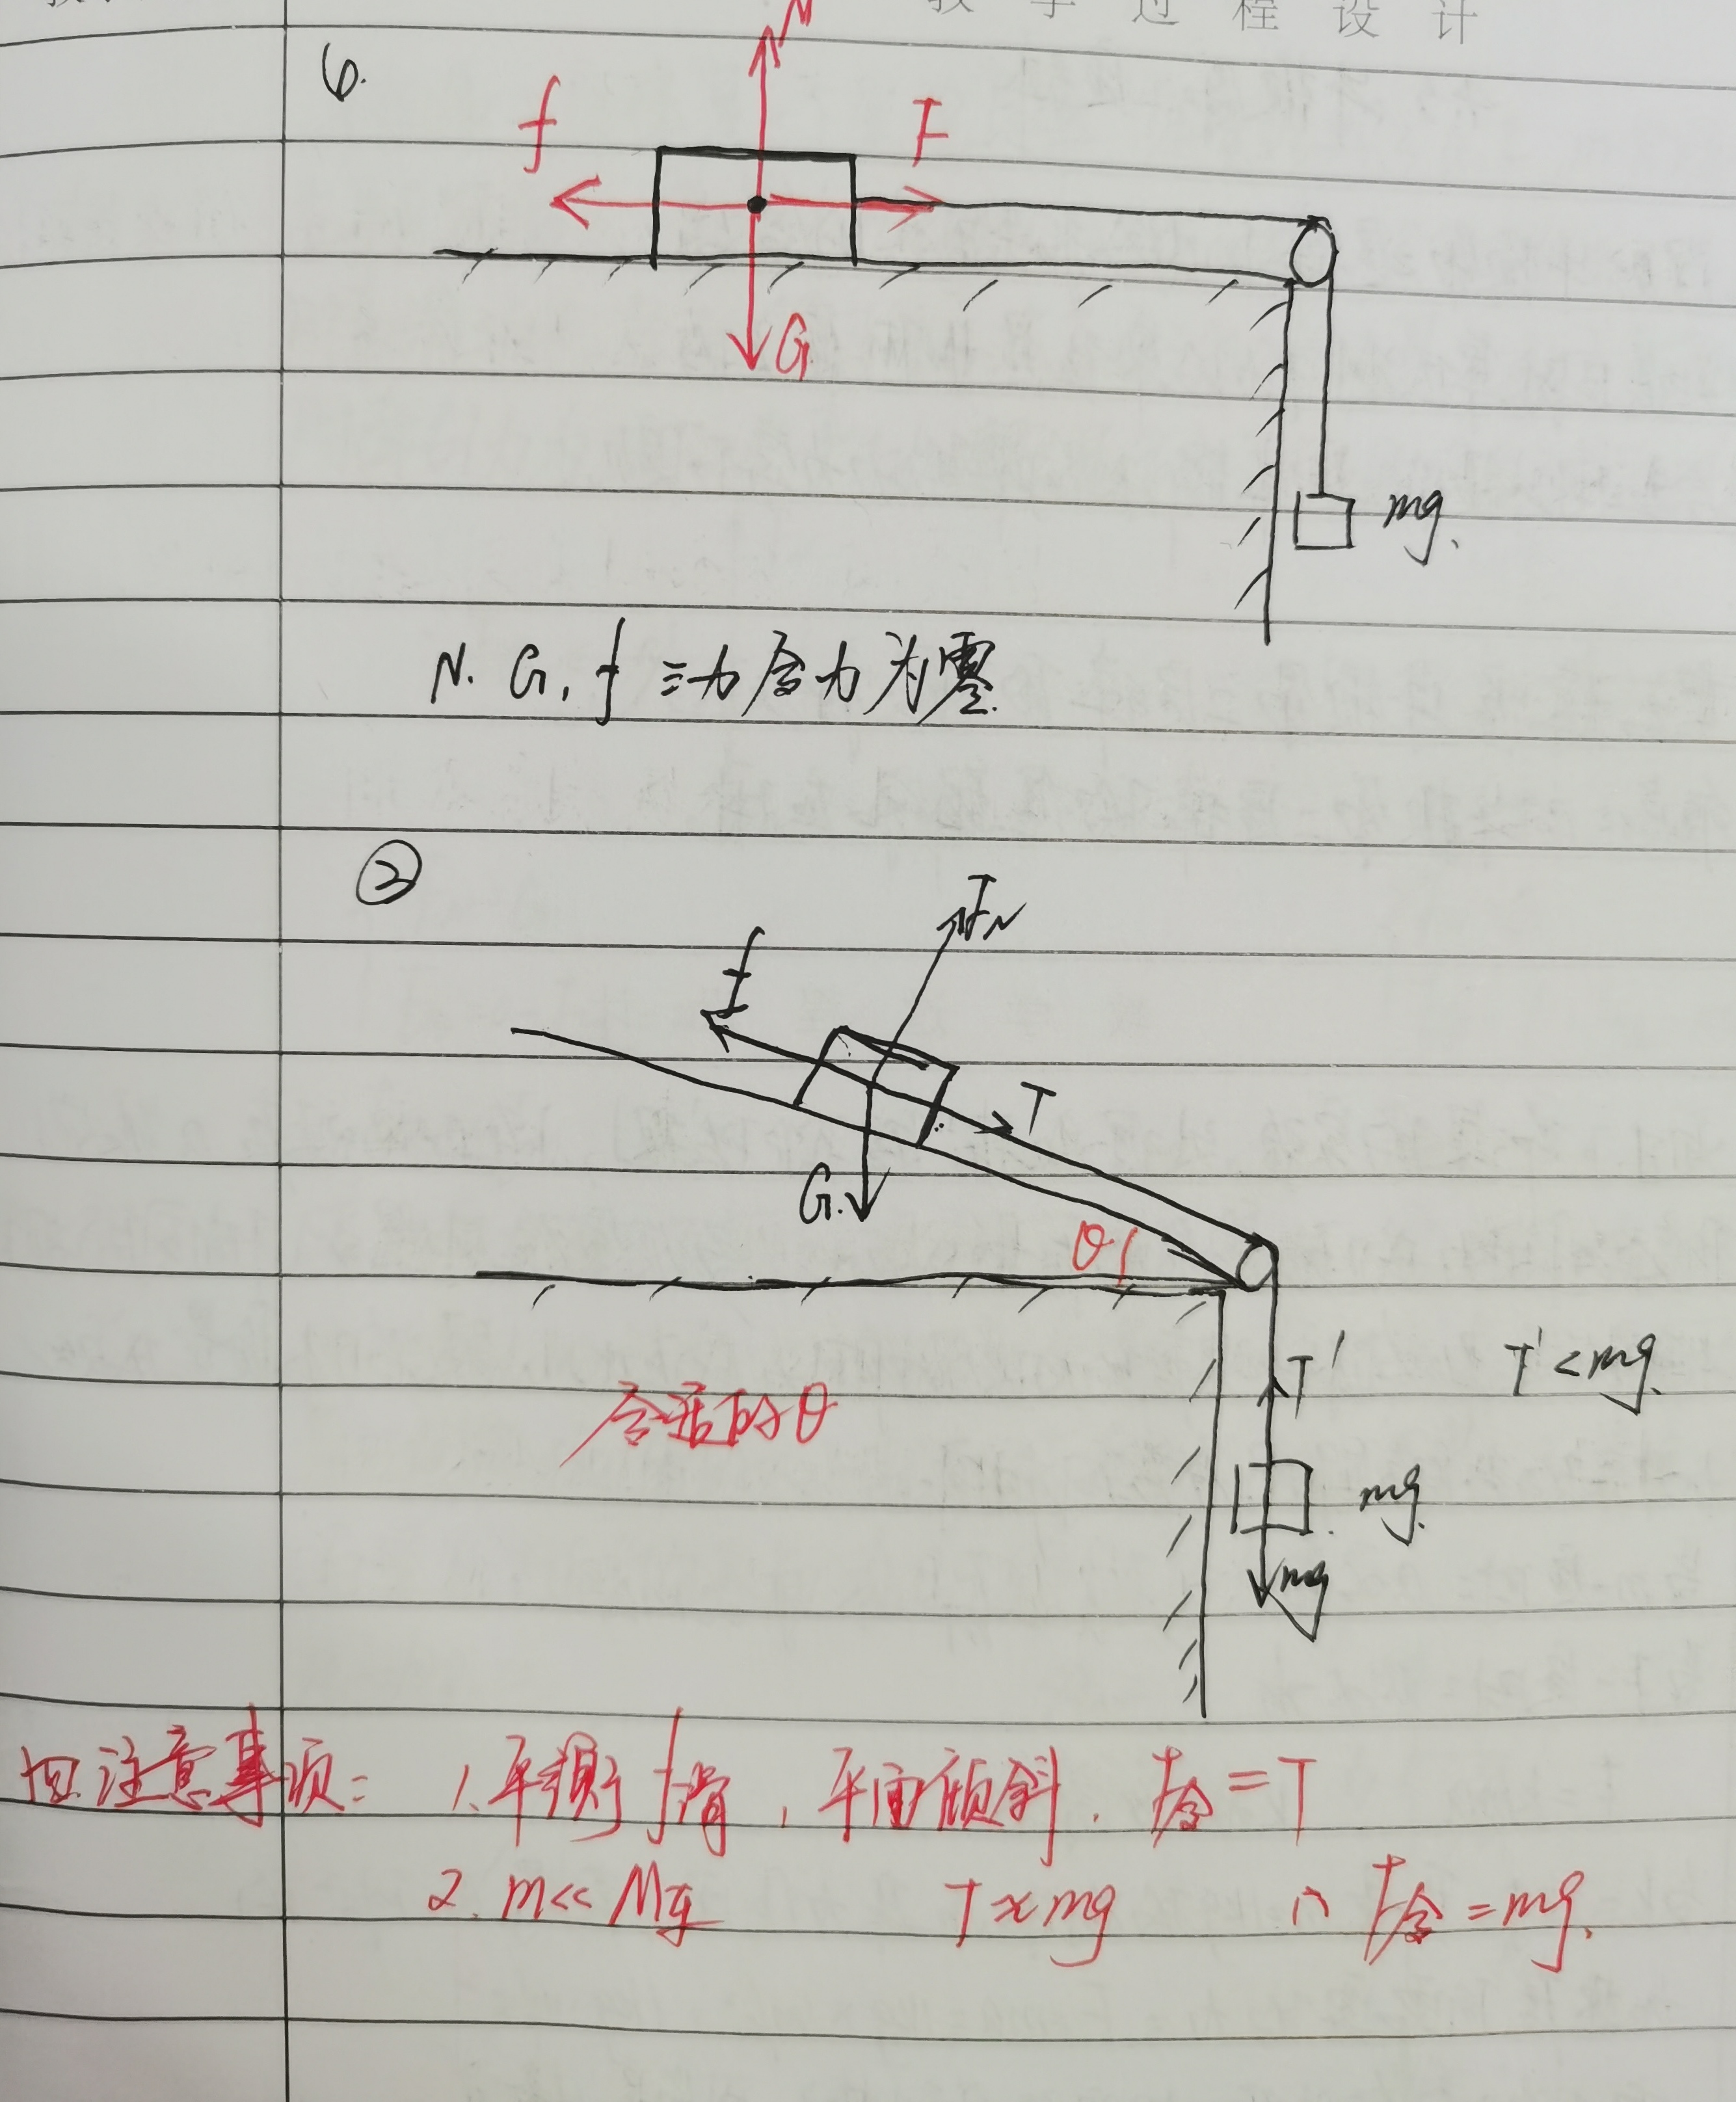 教学过程设计
6.
N
f
F
G
mg.
N. G. f 三力合力为零.
②
FN
f
T
G.
θ
T'
T'<mg.
合适的θ
mg.
mg
四注意事项: 1.平衡f滑, 平面倾斜. F合=T
2. m<<M车 T≈mg ∩ F合=mg.